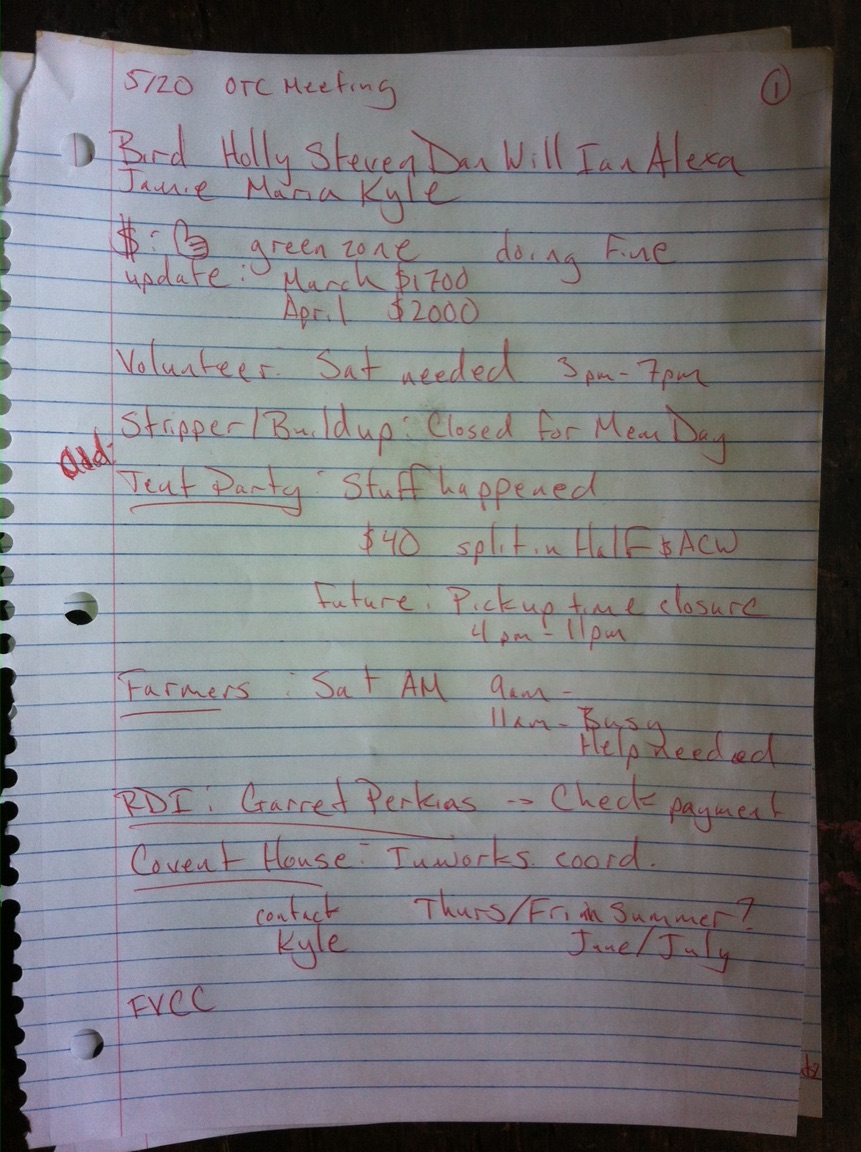 5/20 OTC Meeting ①
Bird Holly Steven Dan Will Ian Alexa
Jamie Maria Kyle
$: green zone doing Fine
update: March $1700
April $2000
Volunteer: Sat needed 3pm-7pm
Stripper/Buildup: Closed for Mem Day
add:
Tent Party: Stuff happened
$40 split in Half $ ACW
Future: Pickup time closure
4pm-11pm
Farmers: Sat AM 9am-
11am-Busy
Help needed
RDI: Garret Perkias -> Check payment
Covent House: Inworks coord.
contact Thurs/Fri in Summer?
Kyle June/July
FVCC